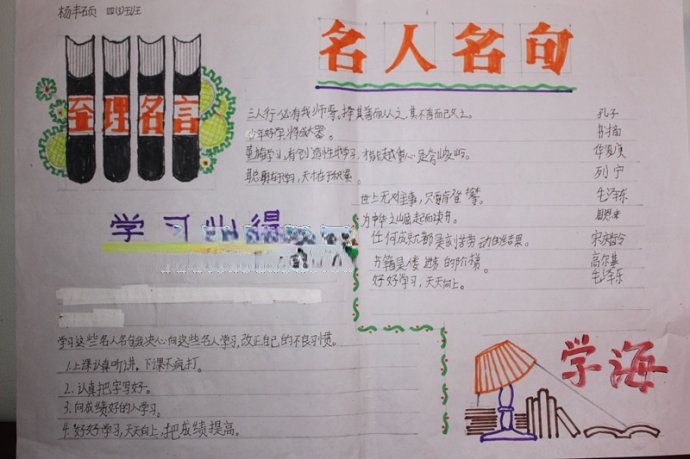 杨丰硕 四四班
名人名句
至理名言
三人行,必有我师焉,择其善而从之,其不善而改之。 孔子
少年好学,将成大器。
华罗庚
聪明在于学习,天才在于积累。 列宁
世上无难事,只要肯登攀。 毛泽东
为中华之崛起而读书。 周恩来
任何成就都是刻苦劳动的结果。 宋庆龄
书籍是人类进步的阶梯。 高尔基
好好学习,天天向上。 毛泽东
学习心得
学习这些名人名句我决心向这些名人学习,改正自己的不良习惯。
1.上课认真听讲,下课不疯打。
2.认真把字写好。
3.向成绩好的人学习。
4.好好学习,天天向上,把成绩提高。
学海